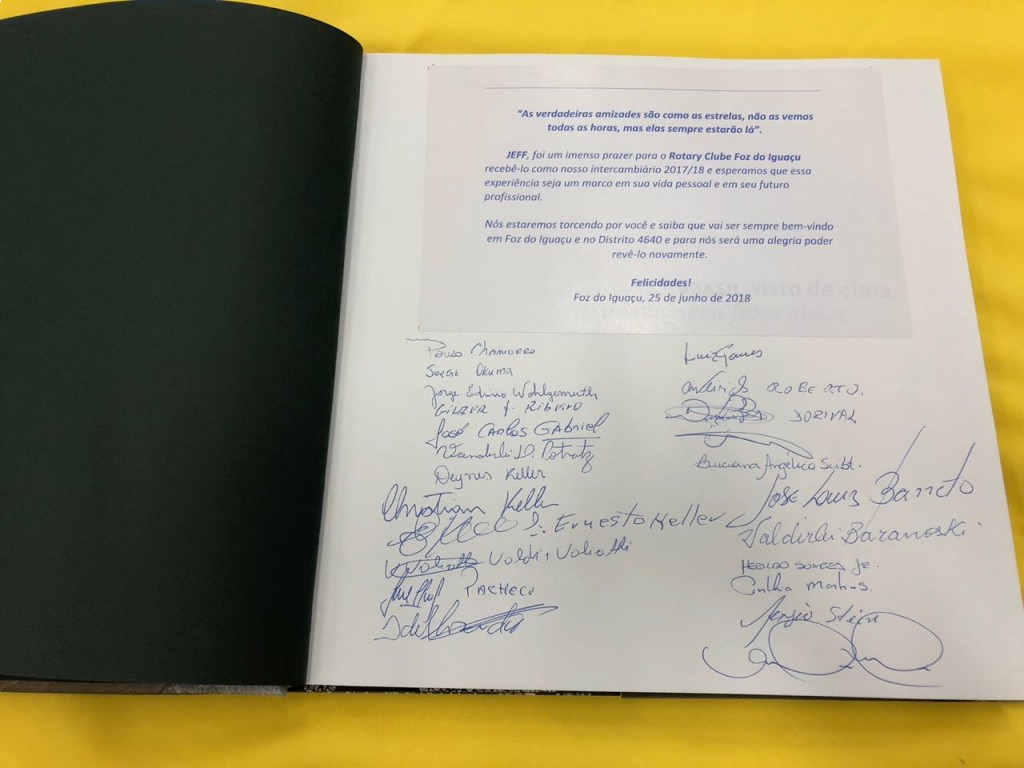 "As verdadeiras amizades são como as estrelas, não as vemos
todas as horas, mas elas sempre estarão lá".
JEFF, foi um imenso prazer para o Rotary Clube Foz do Iguaçu
recebê-lo como nosso intercambiário 2017/18 e esperamos que essa
experiência seja um marco em sua vida pessoal e em seu futuro
profissional.
Nós estaremos torcendo por você e saiba que vai ser sempre bem-vindo
em Foz do Iguaçu e no Distrito 4640 e para nós será uma alegria poder
revê-lo novamente.
Felicidades!
Foz do Iguaçu, 25 de junho de 2018
BRASIL visto de cima
seen from above
Paulo Chamorro
Okuma
Jorge Edino Wohlgemuth
Ribeiro
José Carlos Gabriel
Vanderlei
Deynis Keller
Christian Keller
Ernesto Keller
Valdir
PACHECO
Luiz
ROBERTO.
DORIVAL
Luciana Angélica
Jose Luiz Barreto
Valdirlei Baranoski
Sergio